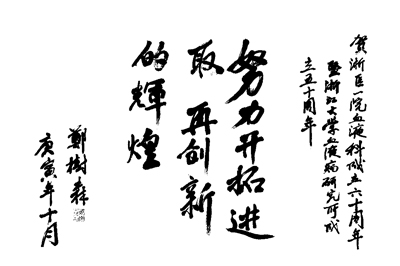 贺浙医一院血液科成立六十周年
暨浙江大学血液病研究所成
立五十周年
努力开拓进
取 再创新
的輝煌
鄭樹森
庚寅年十月